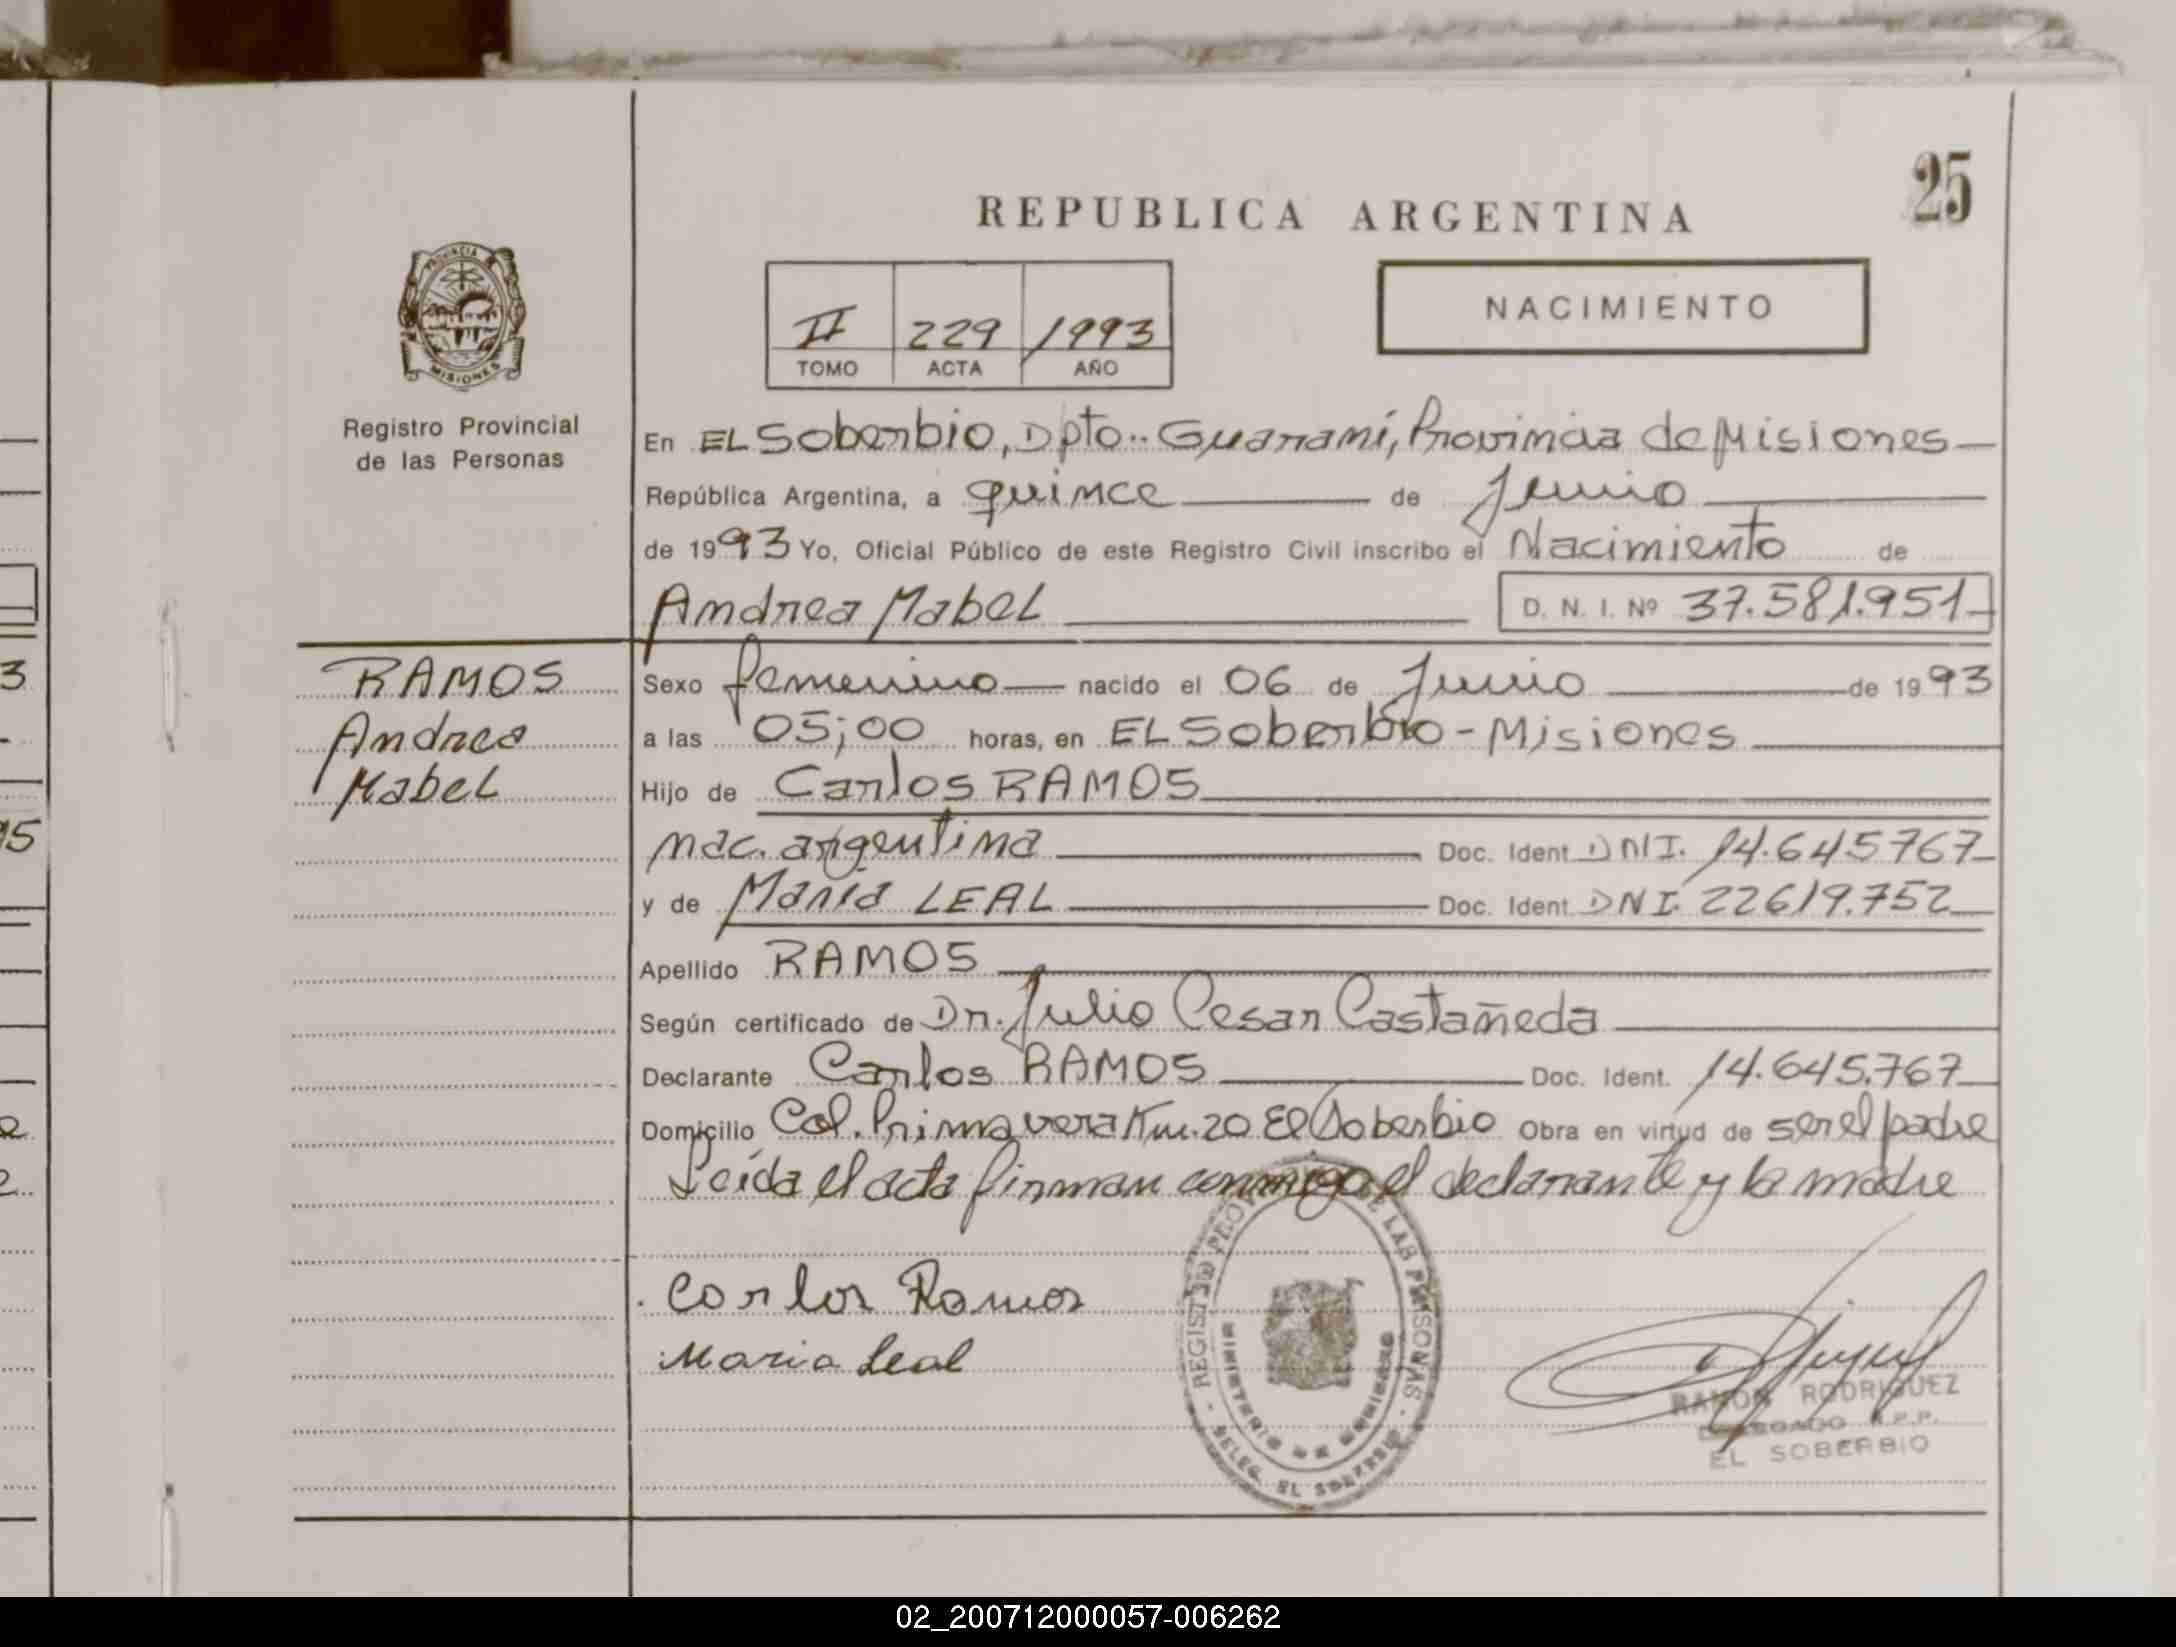 25
REPUBLICA ARGENTINA
PROVINCIA DE
MISIONES
NACIMIENTO
II 229 1993
TOMO ACTA AÑO
Registro Provincial
de las Personas
En EL Soberbio, Dpto.. Guaraní, Provincia de Misiones
República Argentina, a quince de Junio
de 1993 Yo, Oficial Público de este Registro Civil inscribo el Nacimiento de
Andrea Mabel D. N. I. Nº 37.581.951
RAMOS
Andrea
Mabel
Sexo femenino nacido el 06 de Junio de 1993
a las 05;00 horas, en EL Soberbio - Misiones
Hijo de Carlos RAMOS
nac. argentina Doc. Ident. DNI. 14.645767
y de María LEAL Doc. Ident. DNI. 22619.752
Apellido RAMOS
Según certificado de Dr. Julio Cesar Castañeda
Declarante Carlos RAMOS Doc. Ident. 14.645.767
Domicilio Col. Primavera Km. 20 El Soberbio Obra en virtud de ser el padre
Leída el acta firman conmigo el declarante y la madre
Carlos Ramos
Maria Leal
REGISTRO PROV DE LAS PERSONAS
MINISTERIO DE GOBIERNO
DELEG. EL SOBERBIO
RAMON RODRIGUEZ
DELEGADO R.P.P.
EL SOBERBIO
3
15
02_200712000057-006262